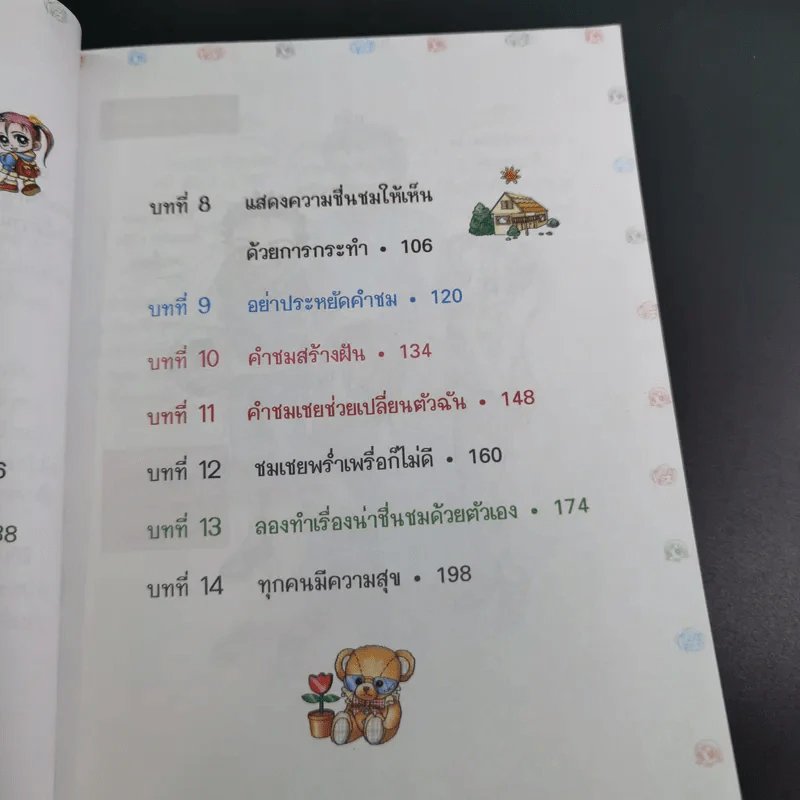 บทที่ 8 แสดงความชื่นชมให้เห็น
ด้วยการกระทำ • 106
บทที่ 9 อย่าประหยัดคำชม • 120
บทที่ 10 คำชมสร้างฝัน • 134
บทที่ 11 คำชมเชยช่วยเปลี่ยนตัวฉัน • 148
บทที่ 12 ชมเชยพร่ำเพรื่อก็ไม่ดี • 160
บทที่ 13 ลองทำเรื่องน่าชื่นชมด้วยตัวเอง • 174
บทที่ 14 ทุกคนมีความสุข • 198